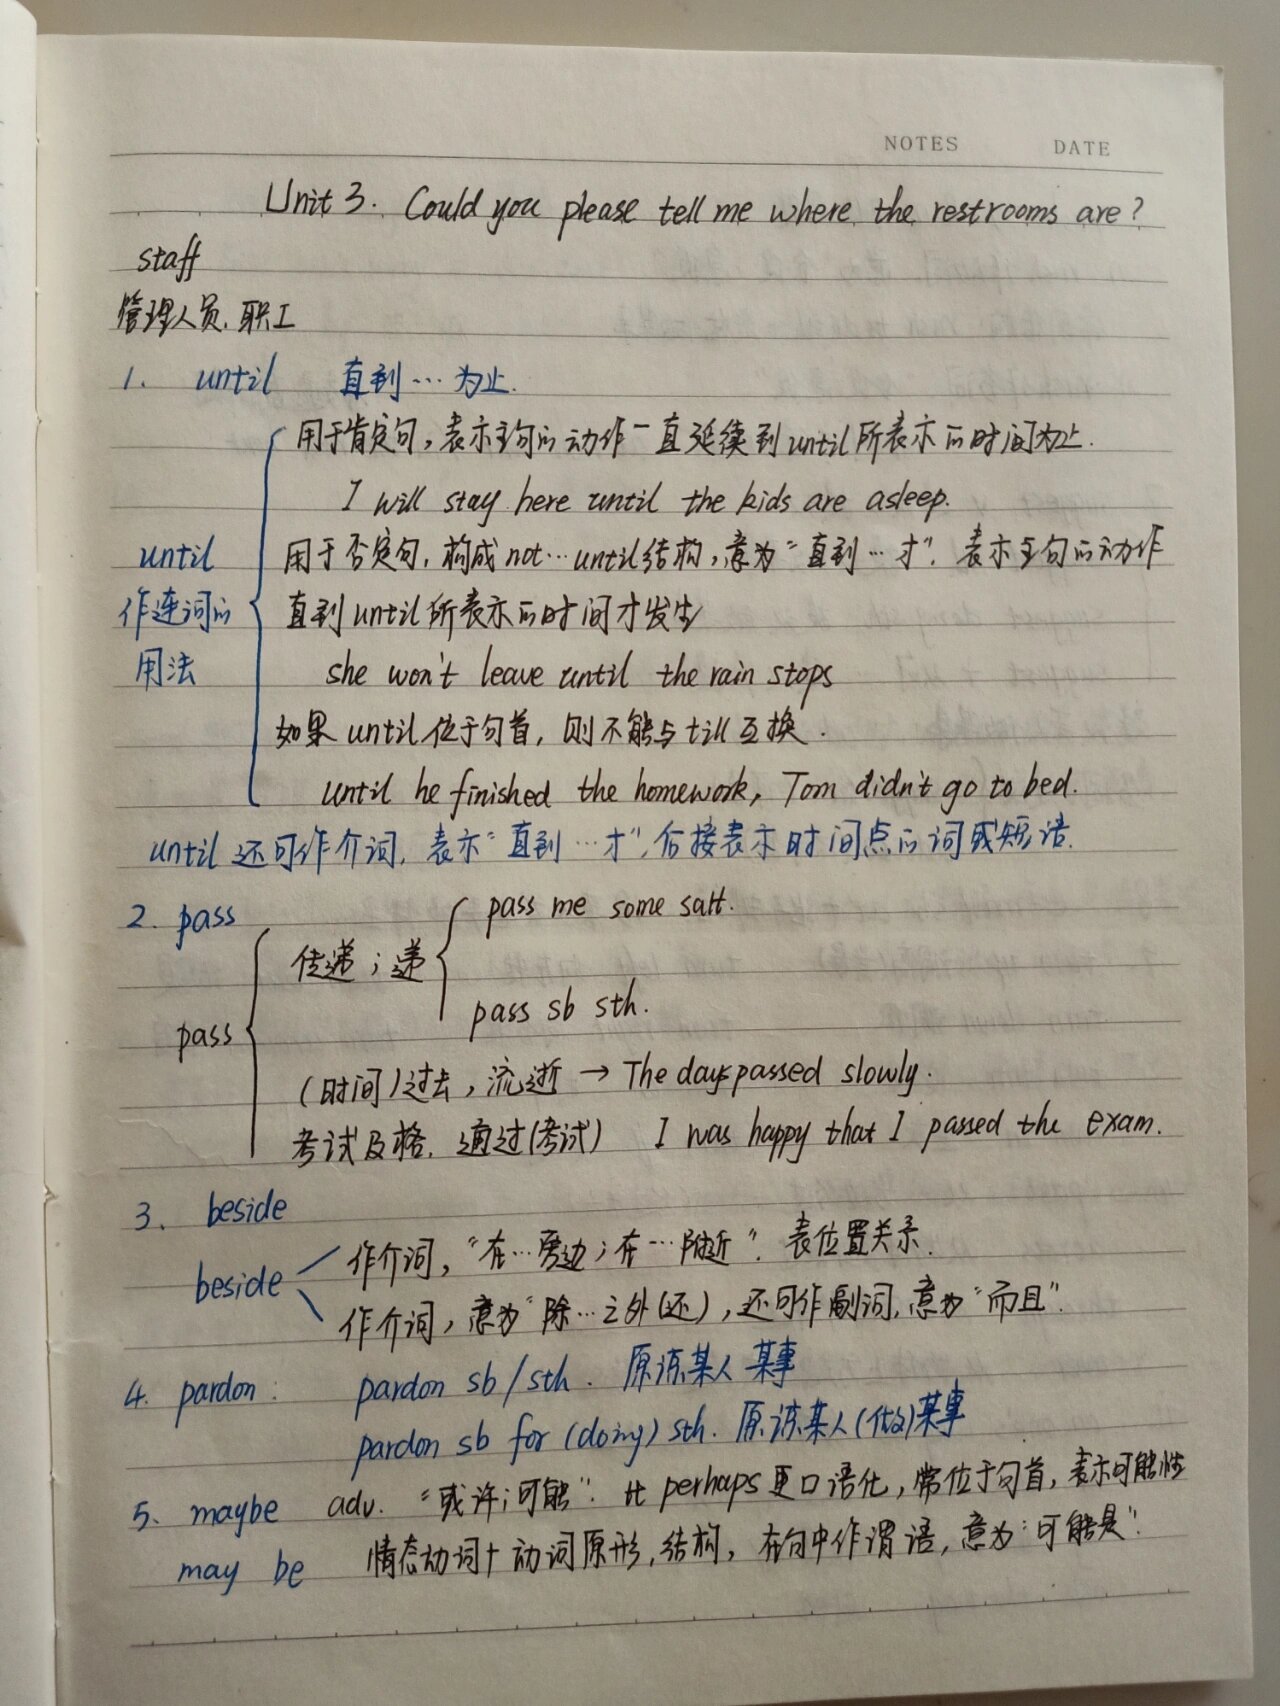 NOTES DATE
Unit 3. Could you please tell me where the restrooms are?
staff
管理人员.职工
1. until 直到…为止.
用于肯定句,表示主句的动作一直延续到until所表示的时间为止.
I will stay here until the kids are asleep.
until 作连词的 用法
用于否定句,构成not…until结构,意为"直到…才".表示主句的动作
直到until所表示的时间才发生
she won't leave until the rain stops
如果until位于句首,则不能与till互换.
until he finished the homework, Tom didn't go to bed.
until还可作介词,表示"直到…才",后接表示时间点的词或短语.
2. pass
pass me some salt.
传递;递
pass sb sth.
pass
(时间)过去,流逝→The days passed slowly.
考试及格.通过(考试) I was happy that I passed the exam.
3. beside
beside
作介词,"在…旁边;在…附近".表位置关系.
作介词,意为"除…之外(还),还可作副词,意为"而且".
4. pardon: pardon sb/sth. 原谅某人 某事
pardon sb for (doing) sth. 原谅某人(做)某事
5. maybe adv. "或许;可能".比perhaps更口语化,常位于句首,表示可能性
may be 情态动词+动词原形,结构,在句中作谓语,意为"可能是".